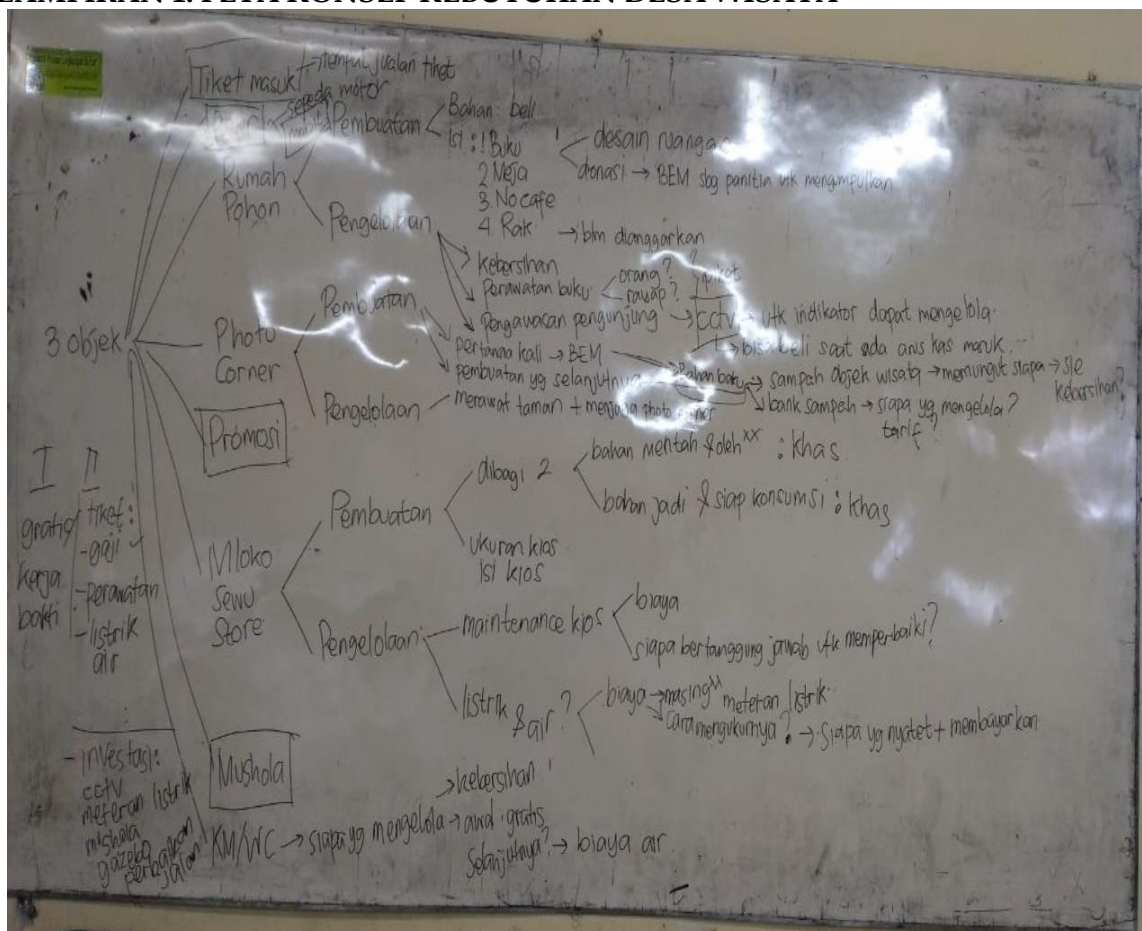 LAMPIRAN 1. PETA KONSEP KEBUTUHAN DESA WISATA
3 objek
Tiket masuk → tempat jualan tiket
sepeda motor
Rumah Pohon
Pembuatan
Bahan: beli
Isi: 1 Buku
2 Meja
3 No cafe
4. Rak → blm dianggarkan
desain ruangan
donasi → BEM sbg panitia utk mengumpulkan
Pengelolaan
kebersihan
Perawatan buku
orang?
rayap?
piket
Pengawasan pengunjung → cctv → utk indikator dapat mengelola
bisa beli saat ada arus kas masuk
Photo Corner
Pembuatan
pertama kali → BEM
pembuatan yg selanjutnya
Bahan baku → sampah objek wisata → memungut siapa → sie kebersihan?
bank sampah → siapa yg mengelola?
tarif?
Pengelolaan
merawat taman + menjaga photo corner
Promosi
Mloko Sewu Store
Pembuatan
dibagi 2
bahan mentah & oleh xx : khas
bahan jadi & siap konsumsi : khas
ukuran kios
isi kios
Pengelolaan
maintenance kios
biaya
siapa bertanggung jawab utk memperbaiki?
listrik & air?
biaya → masing" meteran listrik
cara mengukurnya? → siapa yg nyatet + membayarkan
Mushola
KM/WC → siapa yg mengelola → awal: gratis
kebersihan
Selanjutnya? → biaya air
I
gratis
kerja
bakti
II
tiket:
- gaji
- perawatan
- listrik
air
- investasi:
cctv
meteran listrik
mushola
gazebo
perbaikan
jalan